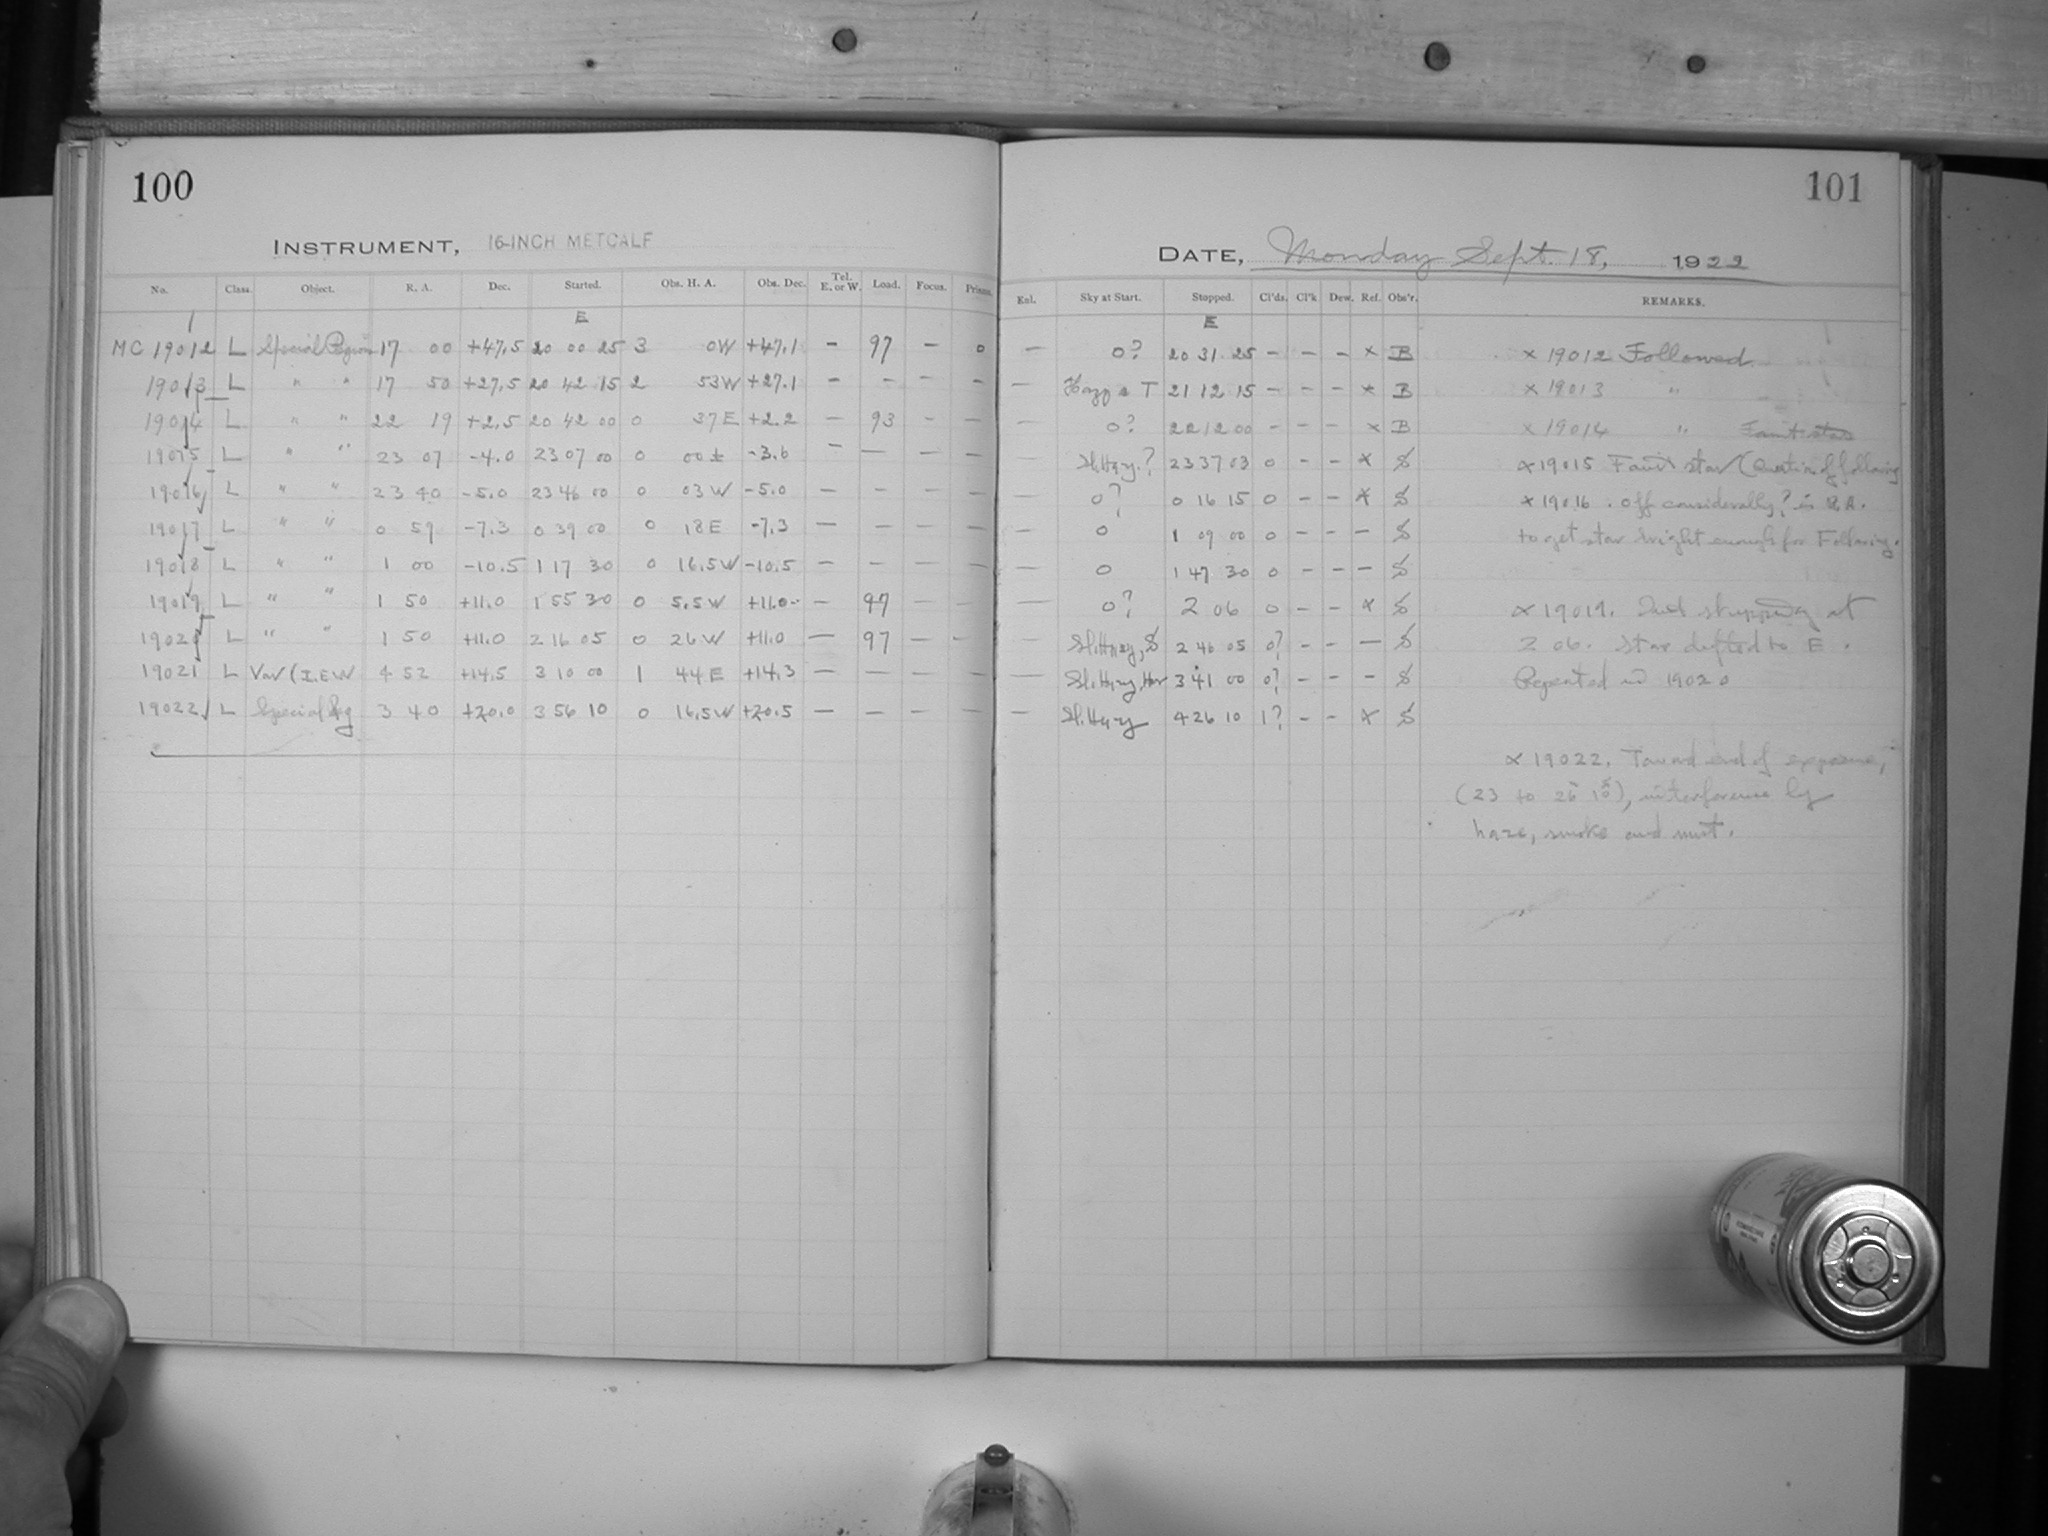 100
INSTRUMENT, 16-INCH METCALF
No. Class. Object. R. A. Dec. Started. Obs. H. A. Obs. Dec. Tel. E. or W. Load. Focus. Prism.
E
MC 19012 L Special Region 17 00 +47.5 20 00 25 3 0W +47.1 — 97 — 0
19013 L " " 17 50 +27.5 20 42 15 2 53W +27.1 — — — —
19014 L " " 22 19 +2.5 20 42 00 0 37E +2.2 — 93 — —
19015 L " " 23 07 -4.0 23 07 00 0 00± -3.6 — — — —
19016 L " " 23 40 -5.0 23 46 00 0 03W -5.0 — — — —
19017 L " " 0 59 -7.3 0 39 00 0 18E -7.3 — — — —
19018 L " " 1 00 -10.5 1 17 30 0 16.5W -10.5 — — — —
19019 L " " 1 50 +11.0 1 55 30 0 5.5W +11.0 — 97 — —
19020 L " " 1 50 +11.0 2 16 05 0 26W +11.0 — 97 — —
19021 L Var (I.E.W 4 52 +14.5 3 10 00 1 44E +14.3 — — — —
19022 L Special Rg 3 40 +20.0 3 56 10 0 16.5W +20.5 — — — —
101
DATE, Monday Sept. 18, 1922
Enl. Sky at Start. Stopped. Cl'ds. Cl'k Dew. Ref. Obs'r. REMARKS.
E
— 0? 20 31 25 — — — x B x 19012 Followed.
— T 21 12 15 — — — x B x 19013 "
— 0? 22 12 00 — — — x B x 19014 " Faint star
— Sl. Hazy.? 23 37 03 0 — — x S x 19015 Faint star (Question of following
— 0? 0 16 15 0 — — x S x 19016 . off considerably? in R.A.
— 0 1 09 00 0 — — — S to get star bright enough for Following.
— 0 1 47 30 0 — — — S
— 0? 2 06 0 — — x S x 19019. stopping at
— Sl. Hazy, S 2 46 05 0? — — — S 2 06. Star drifted to E.
— Sl. Hazy, Hor 3 41 00 0? — — — S Repeated in 19020
— Sl. Hazy 4 26 10 1? — — x S
x 19022. Toward end of exposure,
(23 to 26 10), interference by
haze, smoke and mist.